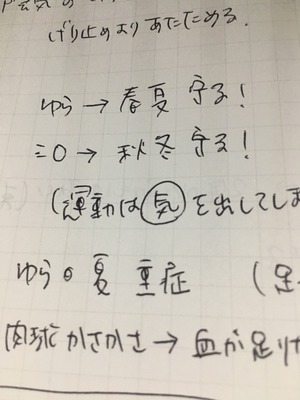 げり止めよりあたためる.
ゆら→春夏 守る!
ミロ→秋冬 守る!
(運動は気を出してしま
ゆら◦夏 重症 (足
肉球かさかさ→血が足りけ